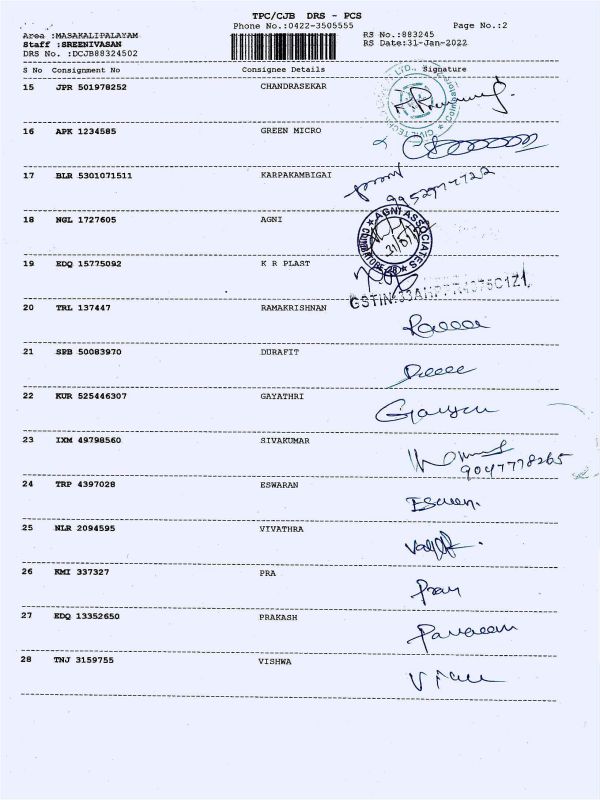 TPC/CJB DRS - PCS
Phone No.:0422-3505555 Page No.:2
Area :MASAKALIPALAYAM RS No.:883245
Staff :SREENIVASAN RS Date:31-Jan-2022
DRS No. :DCJB88324502
S No Consignment No Consignee Details Signature
15 JPR 501978252 CHANDRASEKAR
16 APK 1234585 GREEN MICRO
17 BLR 5301071511 KARPAKAMBIGAI
18 NGL 1727605 AGNI
AGNI ASSOCIATES
COIMBATORE
19 EDQ 15775092 K R PLAST
20 TRL 137447 RAMAKRISHNAN
21 SPB 50083970 DURAFIT
22 KUR 525446307 GAYATHRI
23 IXM 49798560 SIVAKUMAR
9047778265
24 TRP 4397028 ESWARAN
25 NLR 2094595 VIVATHRA
26 KMI 337327 PRA
27 EDQ 13352650 PRAKASH
28 TNJ 3159755 VISHWA